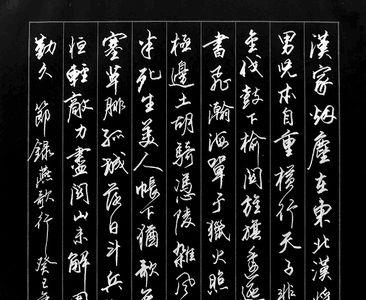 漢家烟塵在東北漢將
男兒本自重橫行天子非
金伐鼓下榆關旌旆逶迤
書飛瀚海單于獵火照
極邊土胡騎憑陵雜風
半死生美人帳下猶歌
塞草腓孤城落日斗兵
恒輕敵力盡關山未解
勤久 節錄燕歌行 癸巳